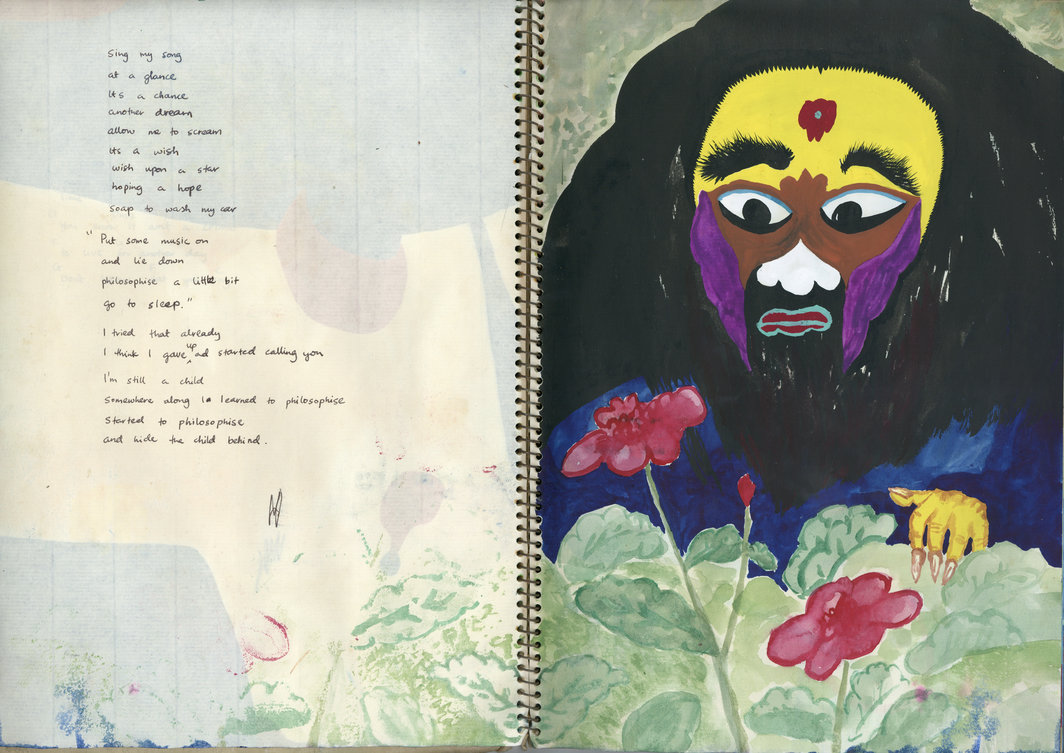 Sing my song
at a glance
Its a chance
another dream
allow me to scream
its a wish
wish upon a star
hoping a hope
soap to wash my car
"Put some music on
and lie down
philosophise a little bit
go to sleep."
I tried that already
I think I gave up ad started calling you
I'm still a child
Somewhere along I learned to philosophise
Started to philosophise
and hide the child behind.